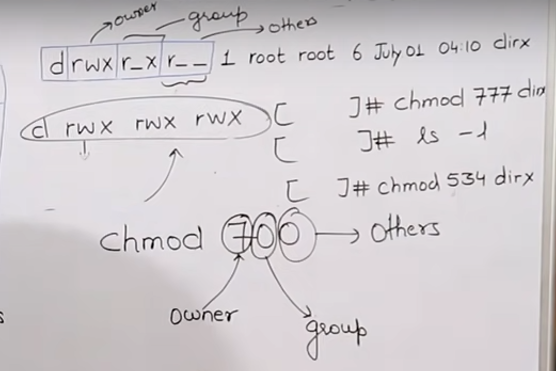 owner group others
drwx r_x r__ 1 root root 6 July 01 04:10 dirx
d rwx rwx rwx [ ]# chmod 777 dirx
[ ]# ls -l
[ ]# chmod 534 dirx
chmod 700 → others
owner
group